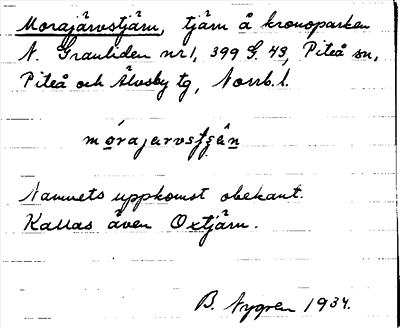 Morajärvstjärn, tjärn å kronoparken
N. Granliden nr 1, 399 G. 43, Piteå sn,
Piteå och Älvsby tg, Norrb. l.
Namnets uppkomst obekant.
Kallas även Oxtjärn.
B. Nygren 1934.